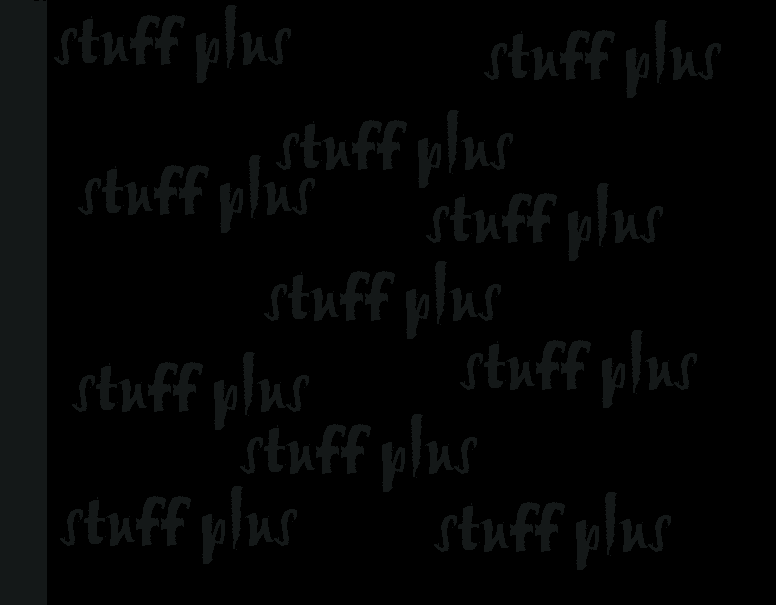 stuff plus
stuff plus
stuff plus
stuff plus
stuff plus
stuff plus
stuff plus
stuff plus
stuff plus
stuff plus
stuff plus